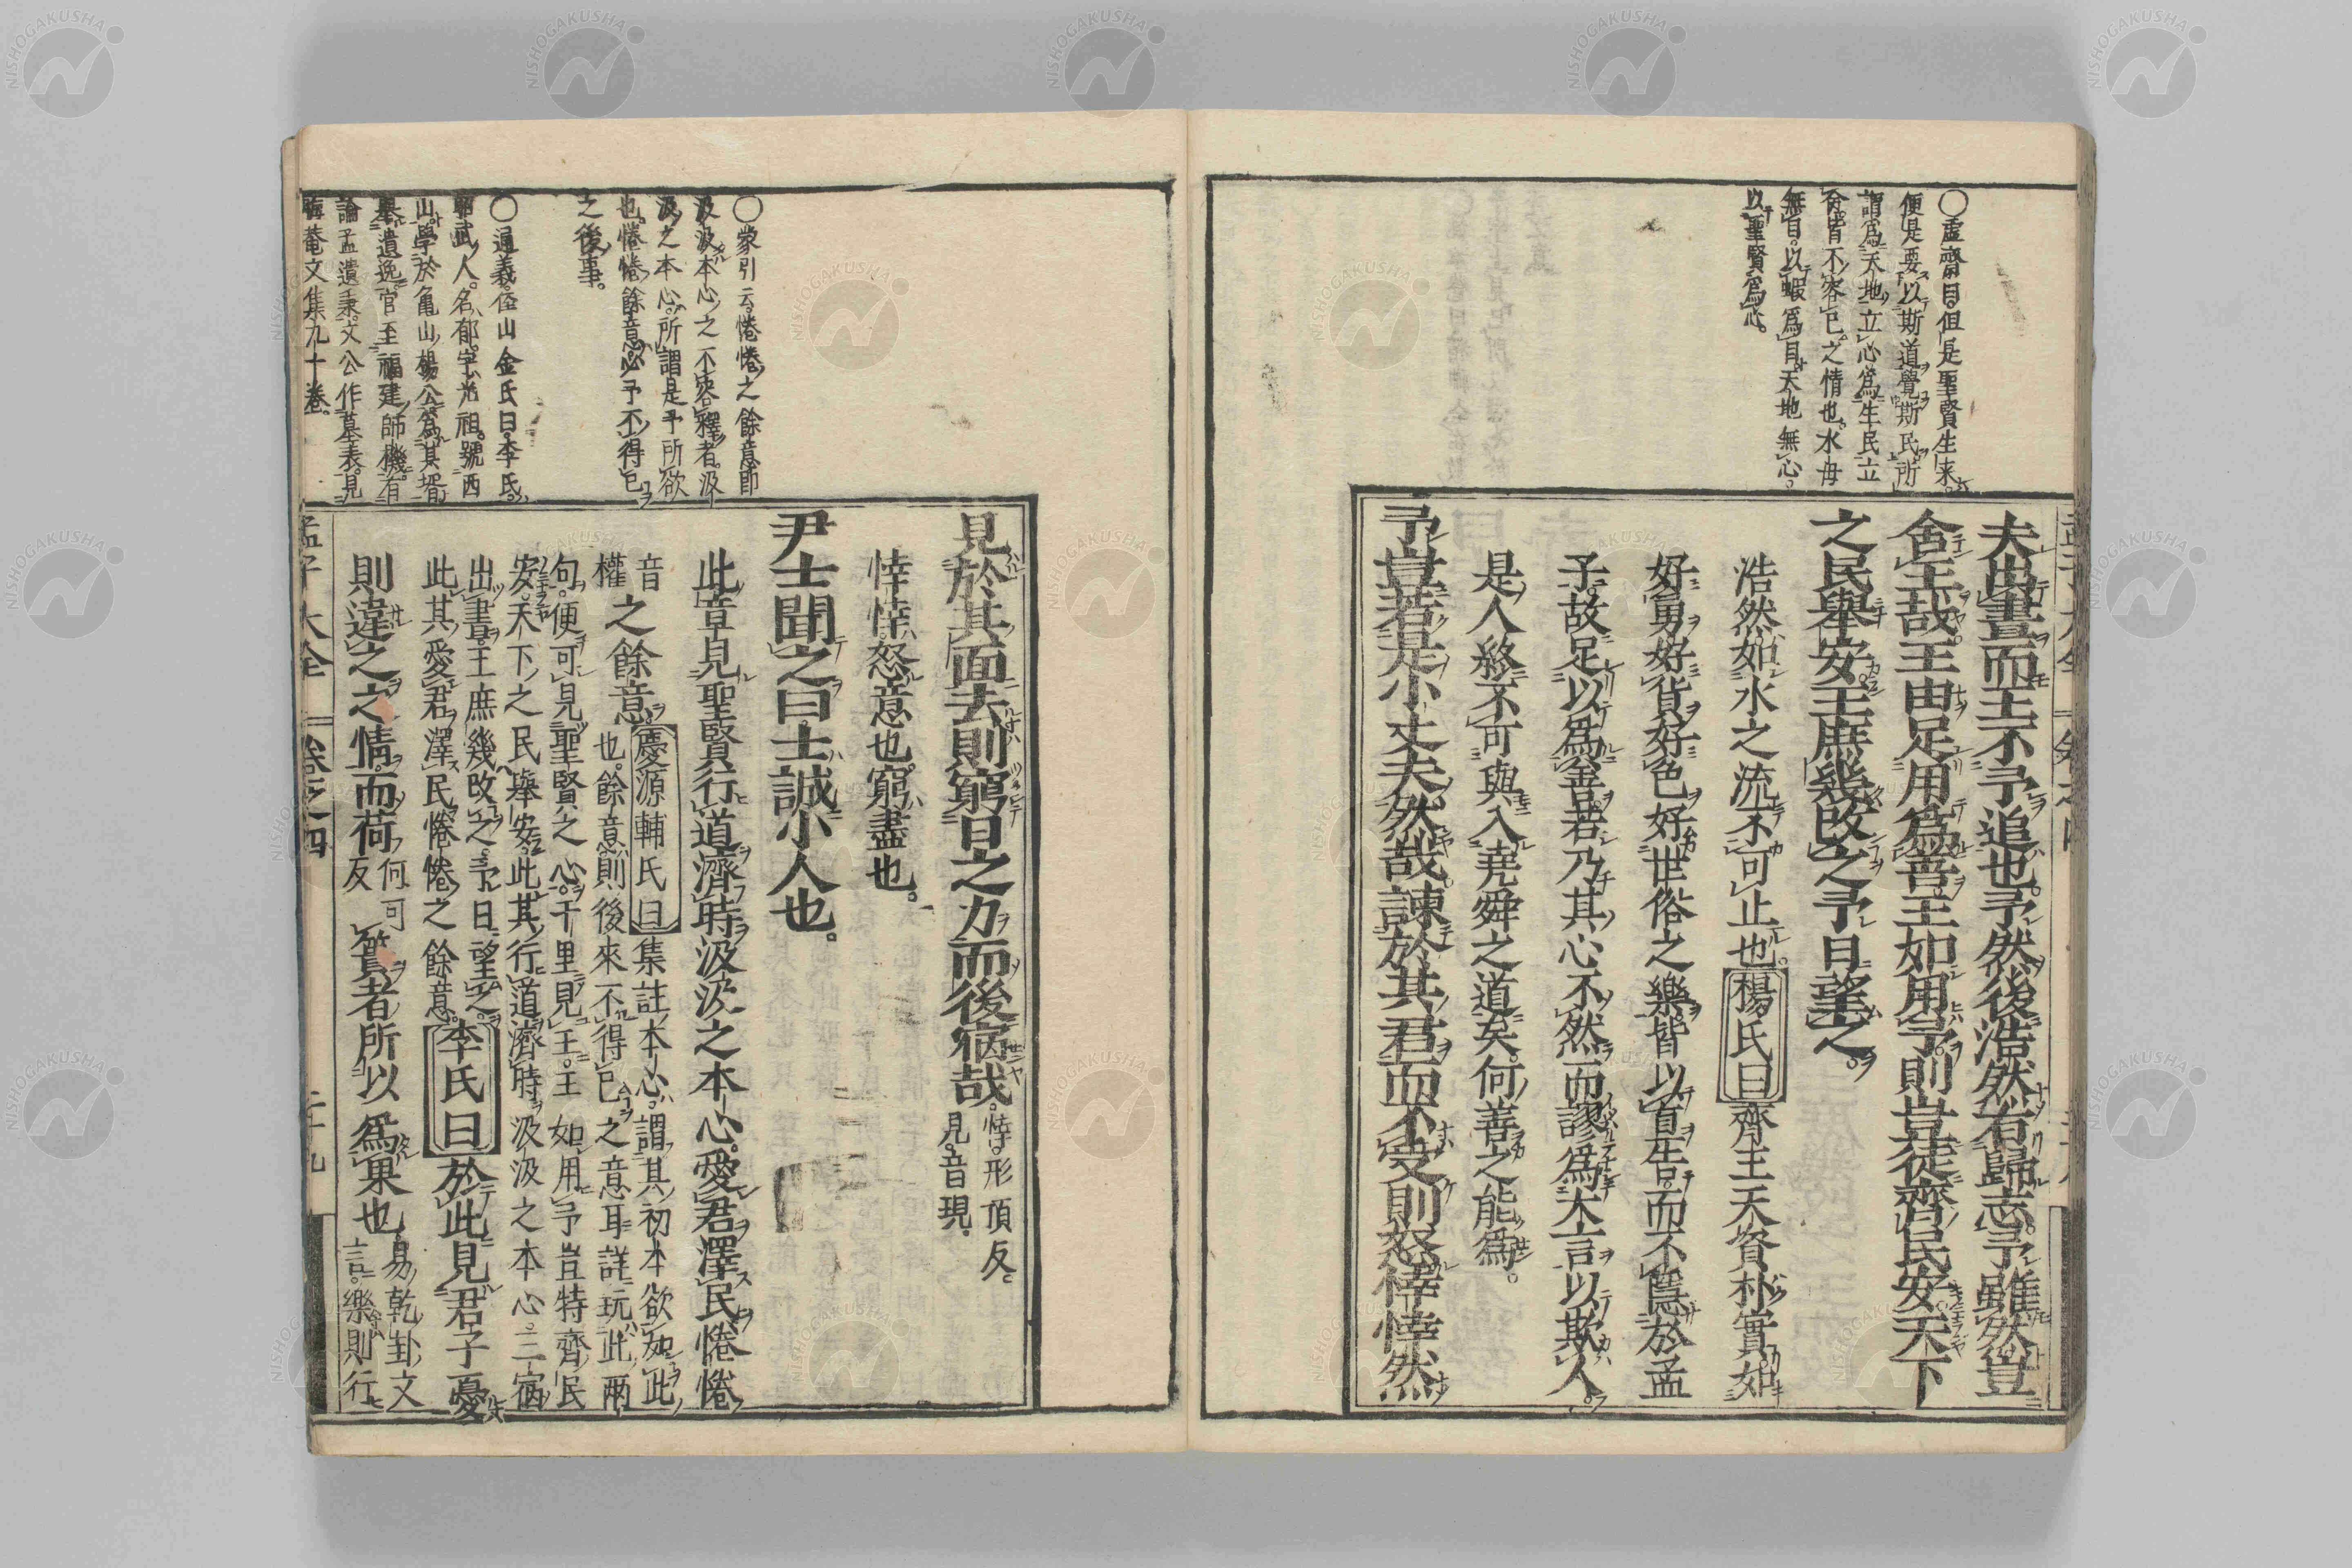 ○虛齋曰。但是聖賢生來。
便是要以斯道覺斯民。所
謂爲天地立心。爲生民立
命。皆不容已之情也。水母
無目。以蝦爲目。天地無心。
以聖賢爲心。
夫出晝而王不予追也。予然後浩然有歸志。予雖然豈
舍王哉。王由足用爲善。王如用予。則豈徒齊民安。天下
之民舉安。王庶幾改之。予日望之。
浩然。如水之流不可止也。楊氏曰齊王天資朴實。如
好勇好貨好色好世俗之樂。皆以直告而不隱於孟
子。故足以爲善。若乃其心不然。而謬爲大言以欺人。
是人終不可與入堯舜之道矣。何善之能爲。
予豈若是小丈夫然哉。諫於其君而不受則怒。悻悻然
○蒙引云。惓惓之餘意。即
汲汲本心之不容釋者。汲
汲之本心。所謂是予所欲
也。惓惓餘意。予不得已
之後事。
○通義。徑山金氏曰。李氏。
昭武人。名郁。字光祖。號西
山。學於龜山楊公。爲其壻。
墓遺逸。官至福建師機。有
論孟遺稾。文公作墓表。見
晦菴文集九十卷。
見於其面。去則窮日之力而後宿哉。悻。形頂反。
見。音現。
悻悻。怒意也。窮。盡也。
尹士聞之曰。士誠小人也。
此章見聖賢行道濟時。汲汲之本心。愛君澤民。惓惓
音權之餘意。慶源輔氏曰集註本心。謂其初本欲如此
也。餘意。則後來不得已之意耳。詳玩此兩
句。便可見聖賢之心。千里見王。王如用予。豈特齊民
安。天下之民舉安。此其行道濟時汲汲之本心。三宿
出晝。王庶幾改之。予日望之。
此其愛君澤民惓惓之餘意。李氏曰於此見君子憂
則違之之情。而荷何可反蕢者所以爲果也。易乾卦文
言。樂則行
孟子大全 卷之四 二十九